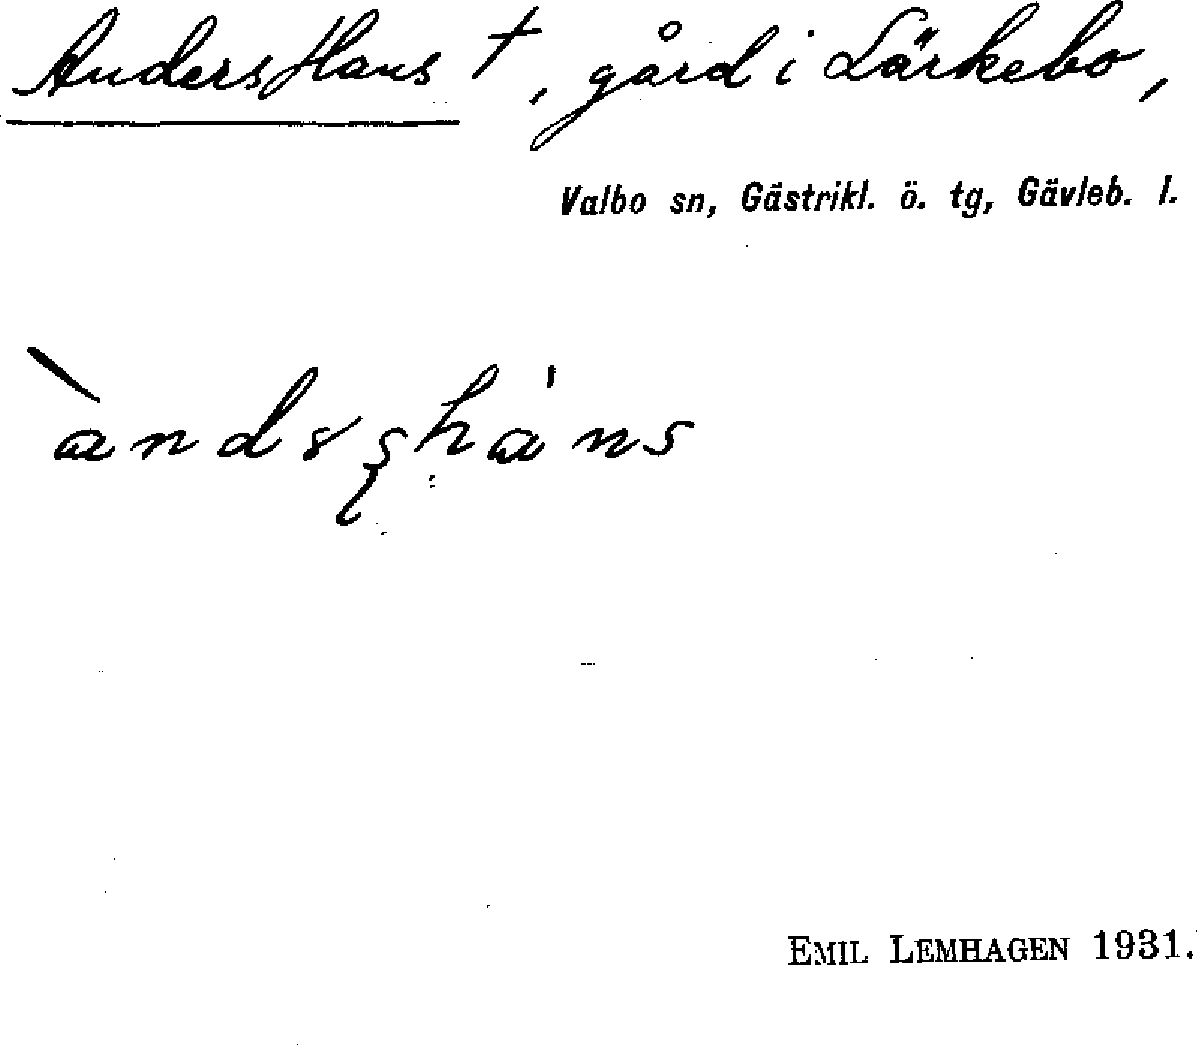 Anders Hans †, gård i Lärkebo,
Valbo sn, Gästrikl. ö. tg, Gävleb. l.
Emil Lemhagen 1931.